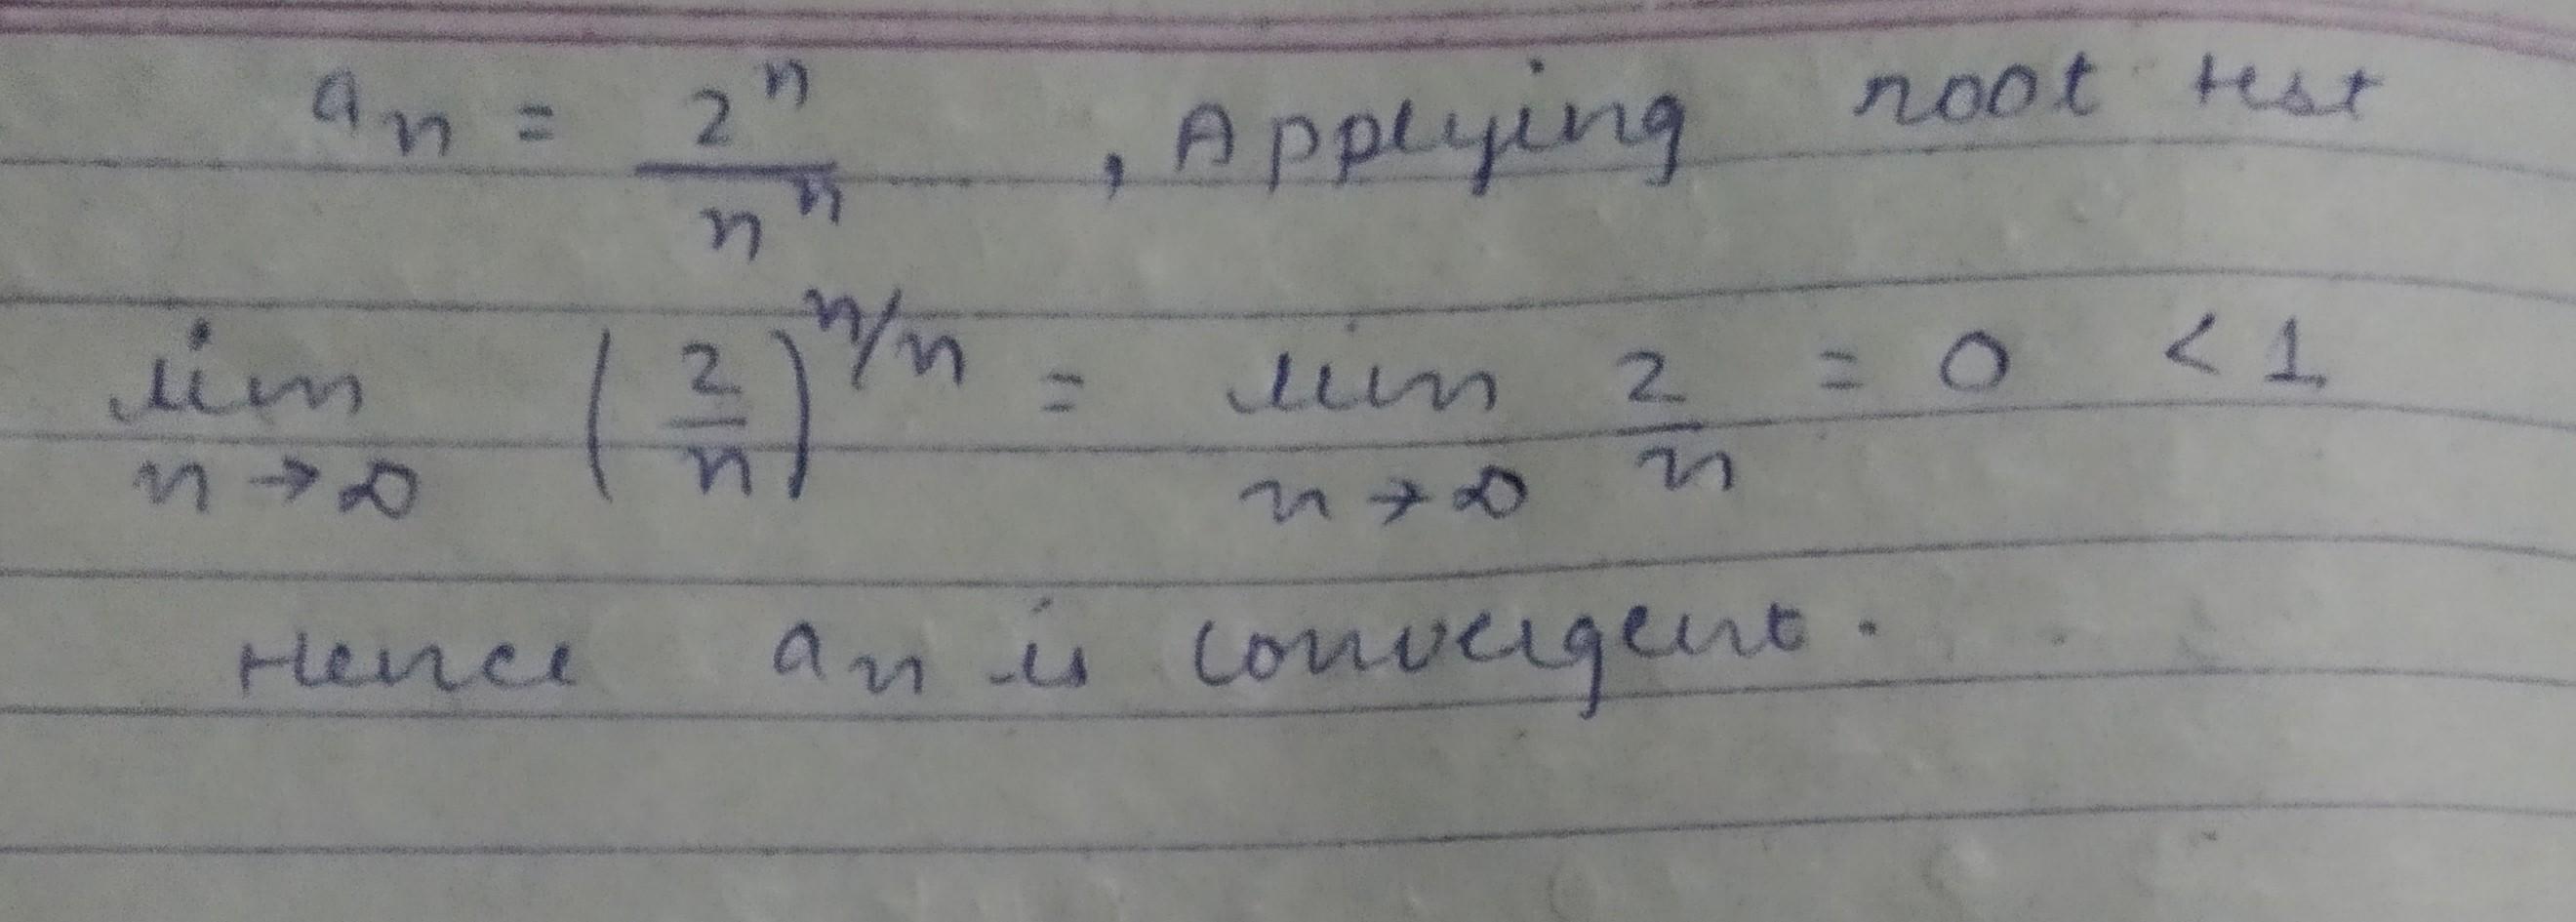 aₙ = 2ⁿ/nⁿ , Applying root test
lim n→∞ (2/n)^(n/n) = lim n→∞ 2/n = 0 < 1
Hence aₙ is convergent.